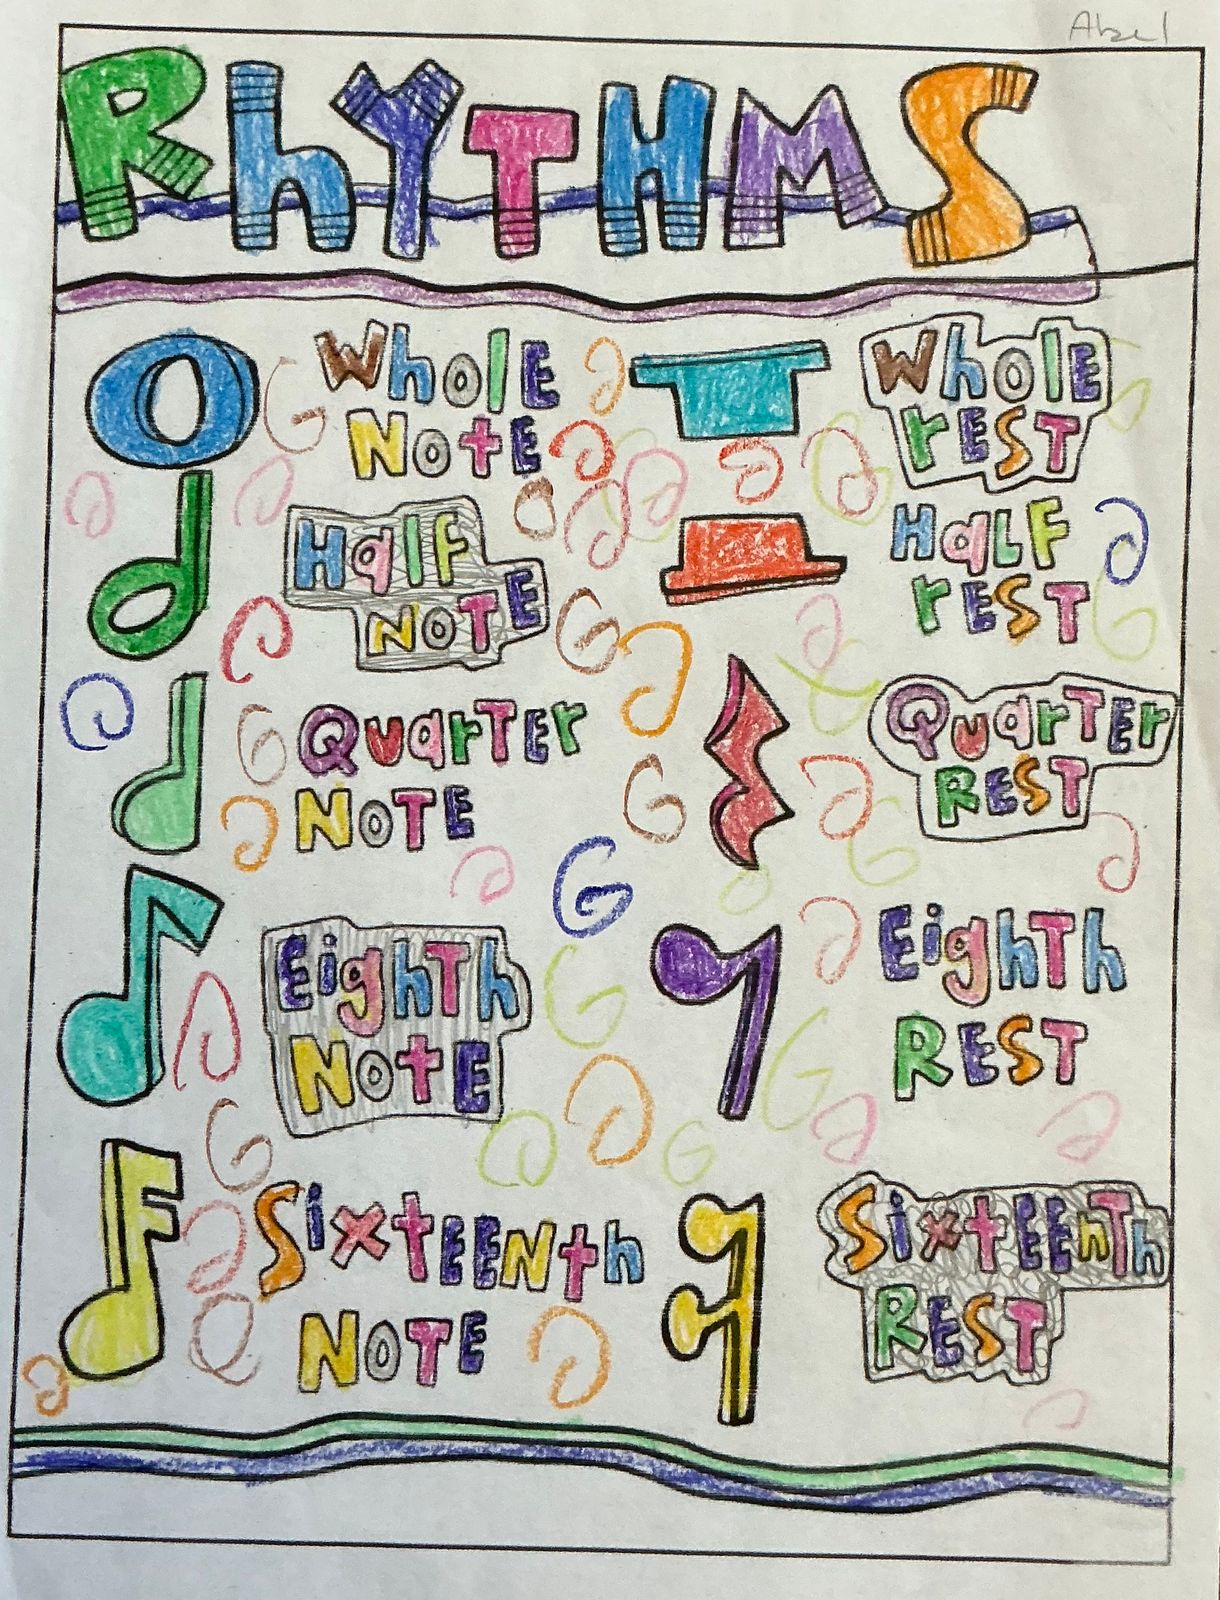 Abel
RhYTHMS
Whole
NOtE
Whole
rEST
Half
NOTE
HaLF
rEST
QuarTEr
NOTE
QuarTEr
REST
EighTh
NOtE
EighTh
REST
SixtEENth
NOTE
SixtEEnTh
REST